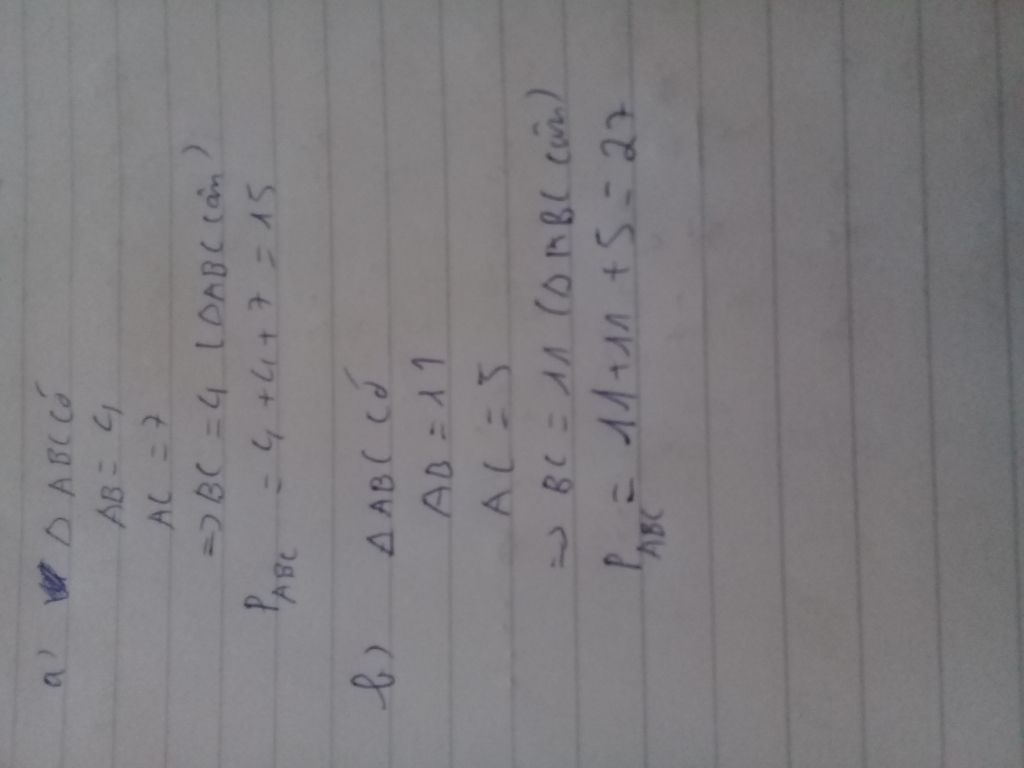 a) Δ ABC có
AB = 4
AC = 7
=> BC = 4 (ΔABC cân)
P_ABC = 4 + 4 + 7 = 15
b) Δ ABC có
AB = 11
AC = 5
=> BC = 11 (ΔABC cân)
P_ABC = 11 + 11 + 5 = 27